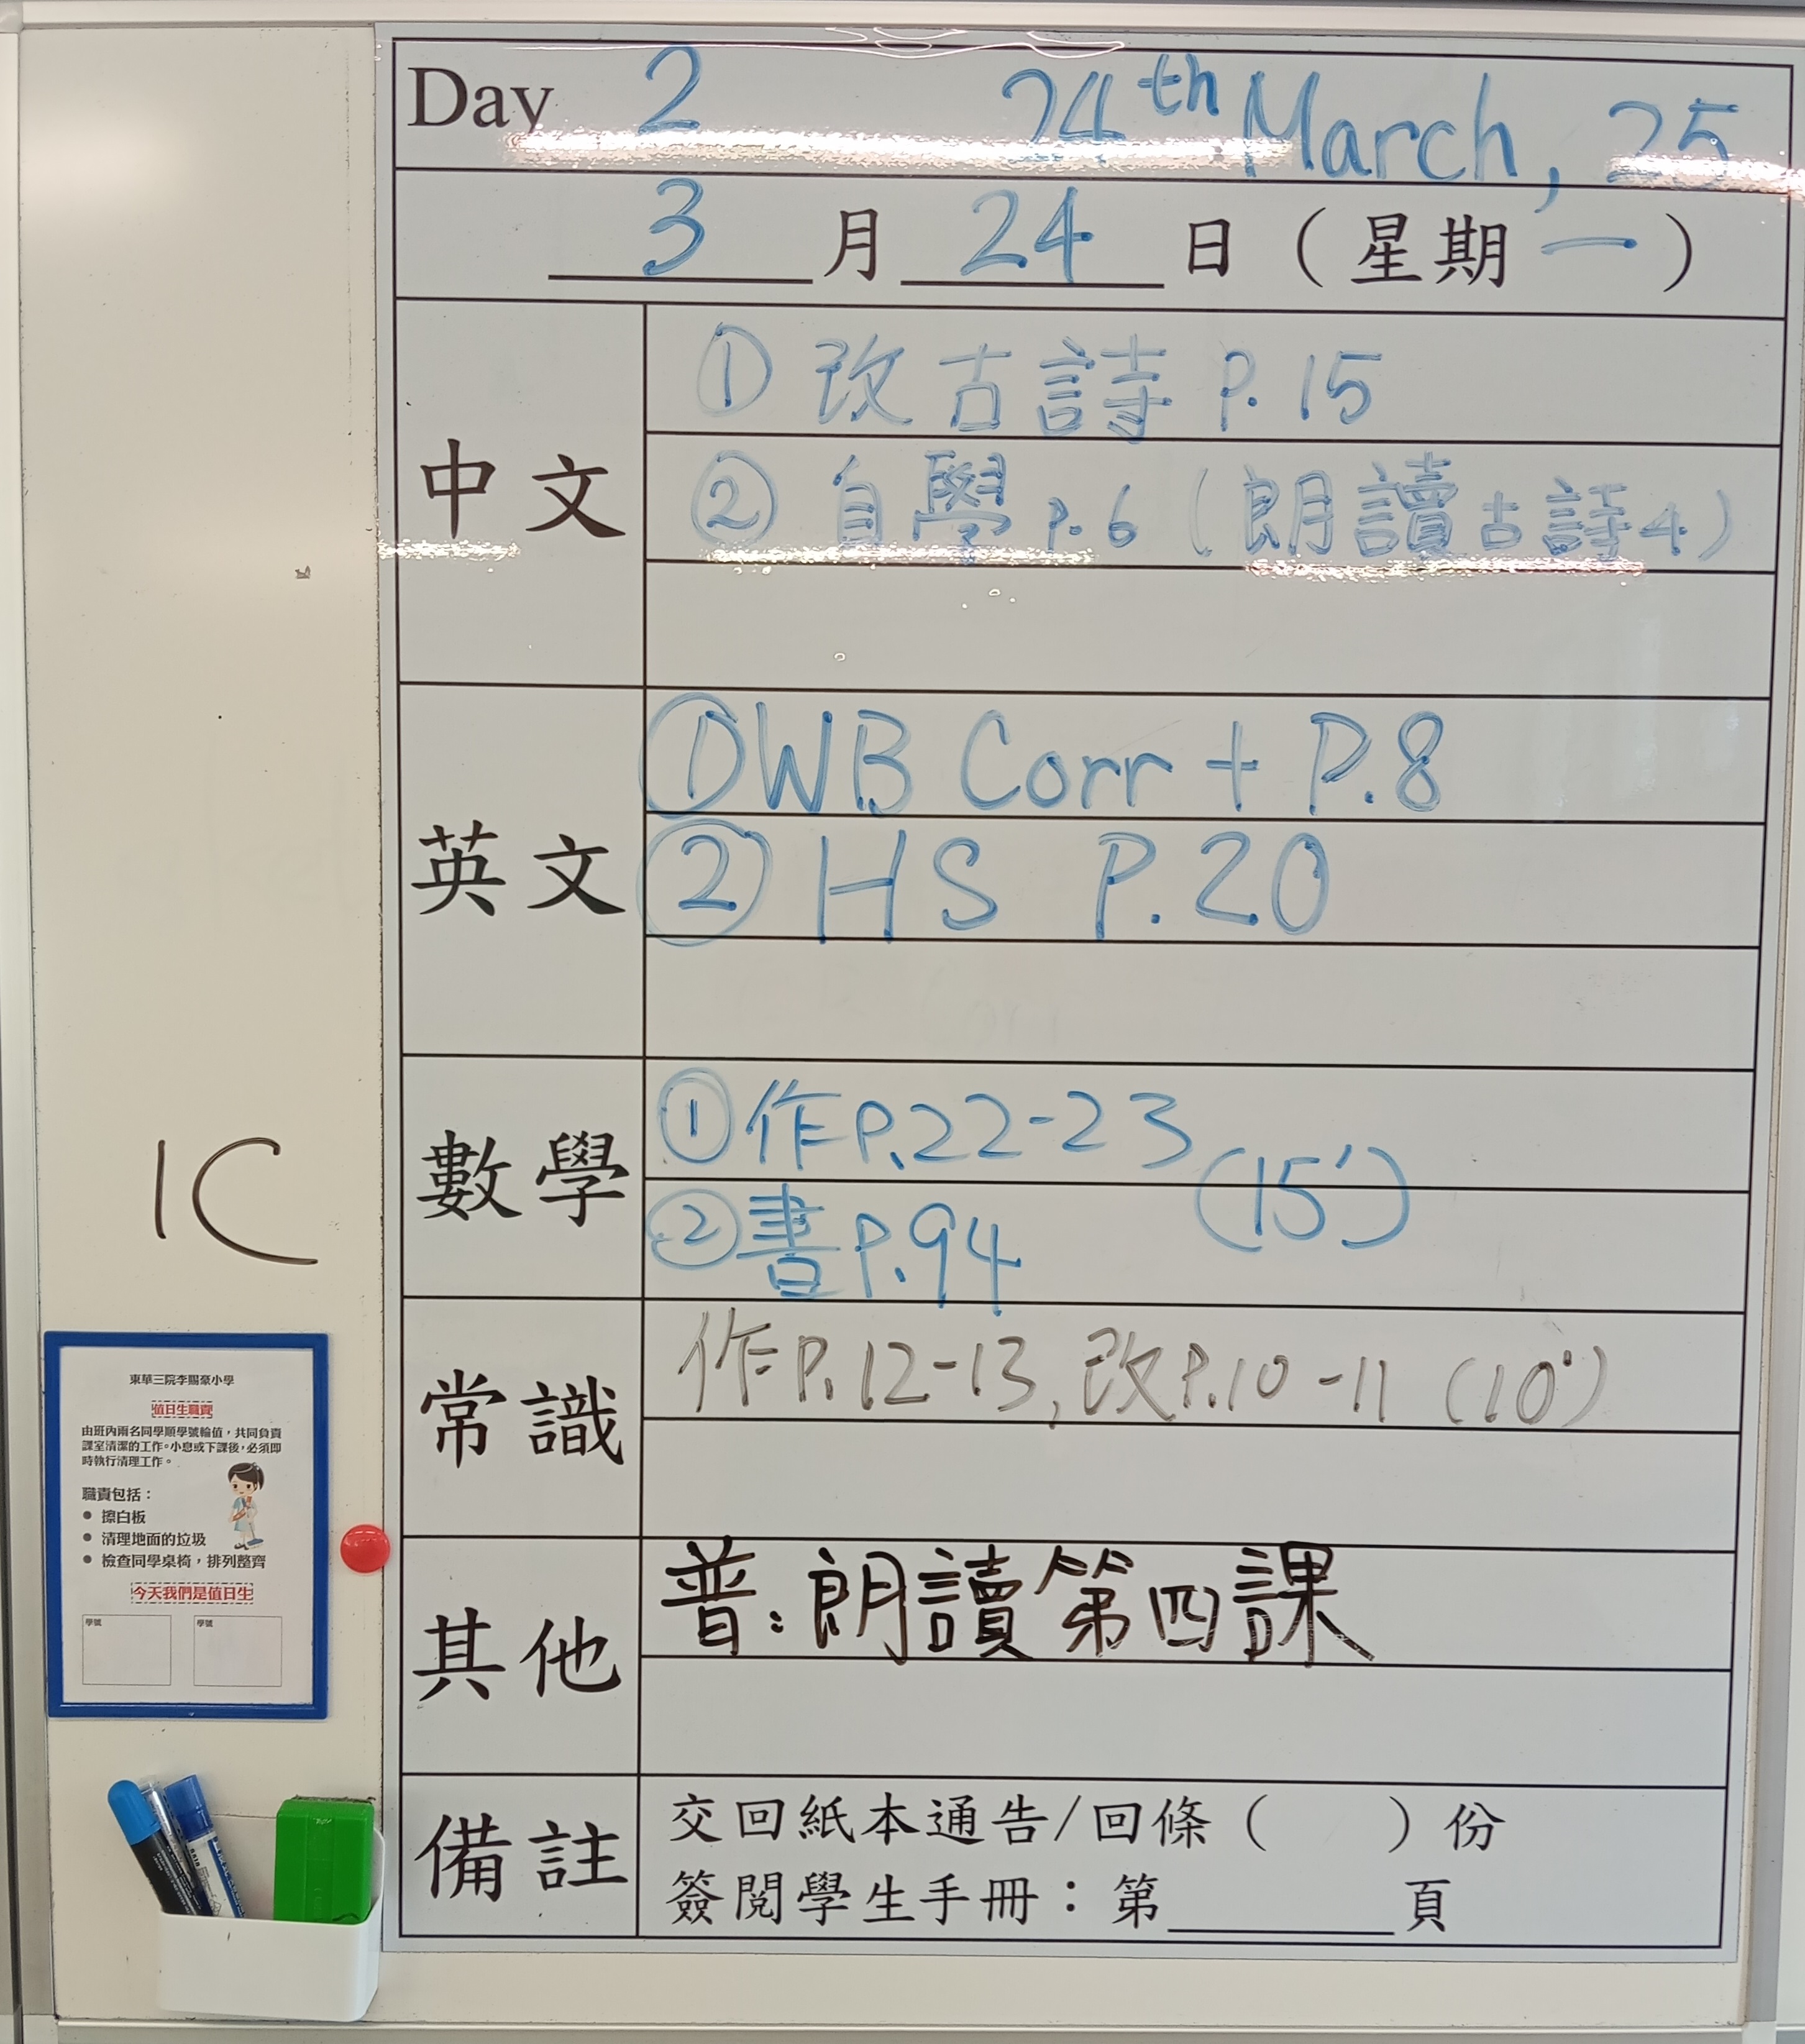 Day 2 24th March, 25
3 月 24 日 (星期一)
中文
① 改古詩 P.15
② 自學 P.6 (朗讀古詩4)
英文
① WB Corr + P.8
② HS P.20
數學
① 作P.22-23
(15')
② 書P.94
常識
作P.12-13, 改P.10-11 (10')
其他
普:朗讀第四課
備註
交回紙本通告/回條( )份
簽閱學生手冊:第______頁
1C
東華三院李賜豪小學
值日生職責
由班內兩名同學順學號輪值,共同負責
課室清潔的工作。小息或下課後,必須即
時執行清理工作。
職責包括:
● 擦白板
● 清理地面的垃圾
● 檢查同學桌椅,排列整齊
今天我們是值日生
學號 學號